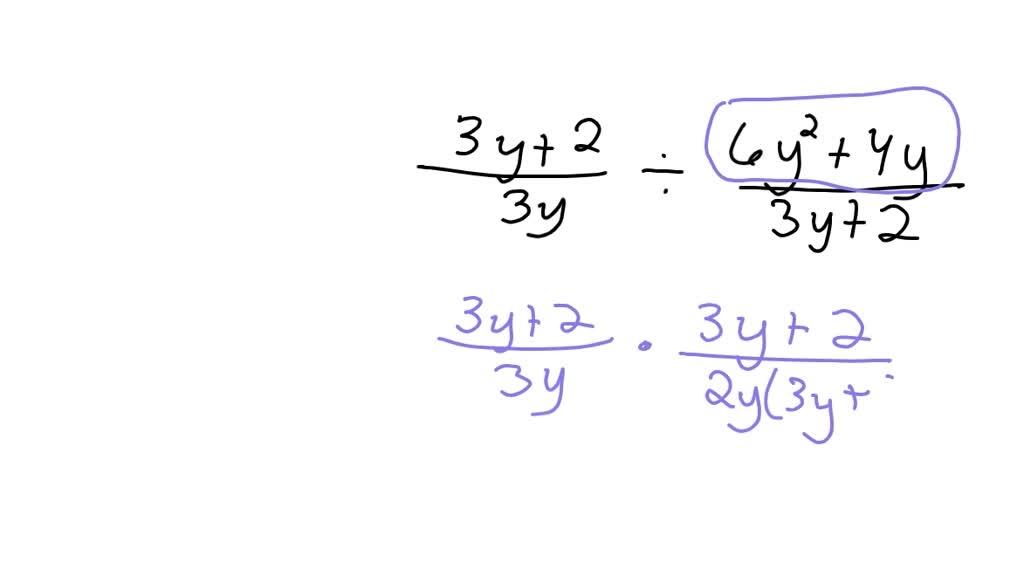 (3y+2)/(3y) ÷ (6y²+4y)/(3y+2)
(3y+2)/(3y) · (3y+2)/(2y(3y+